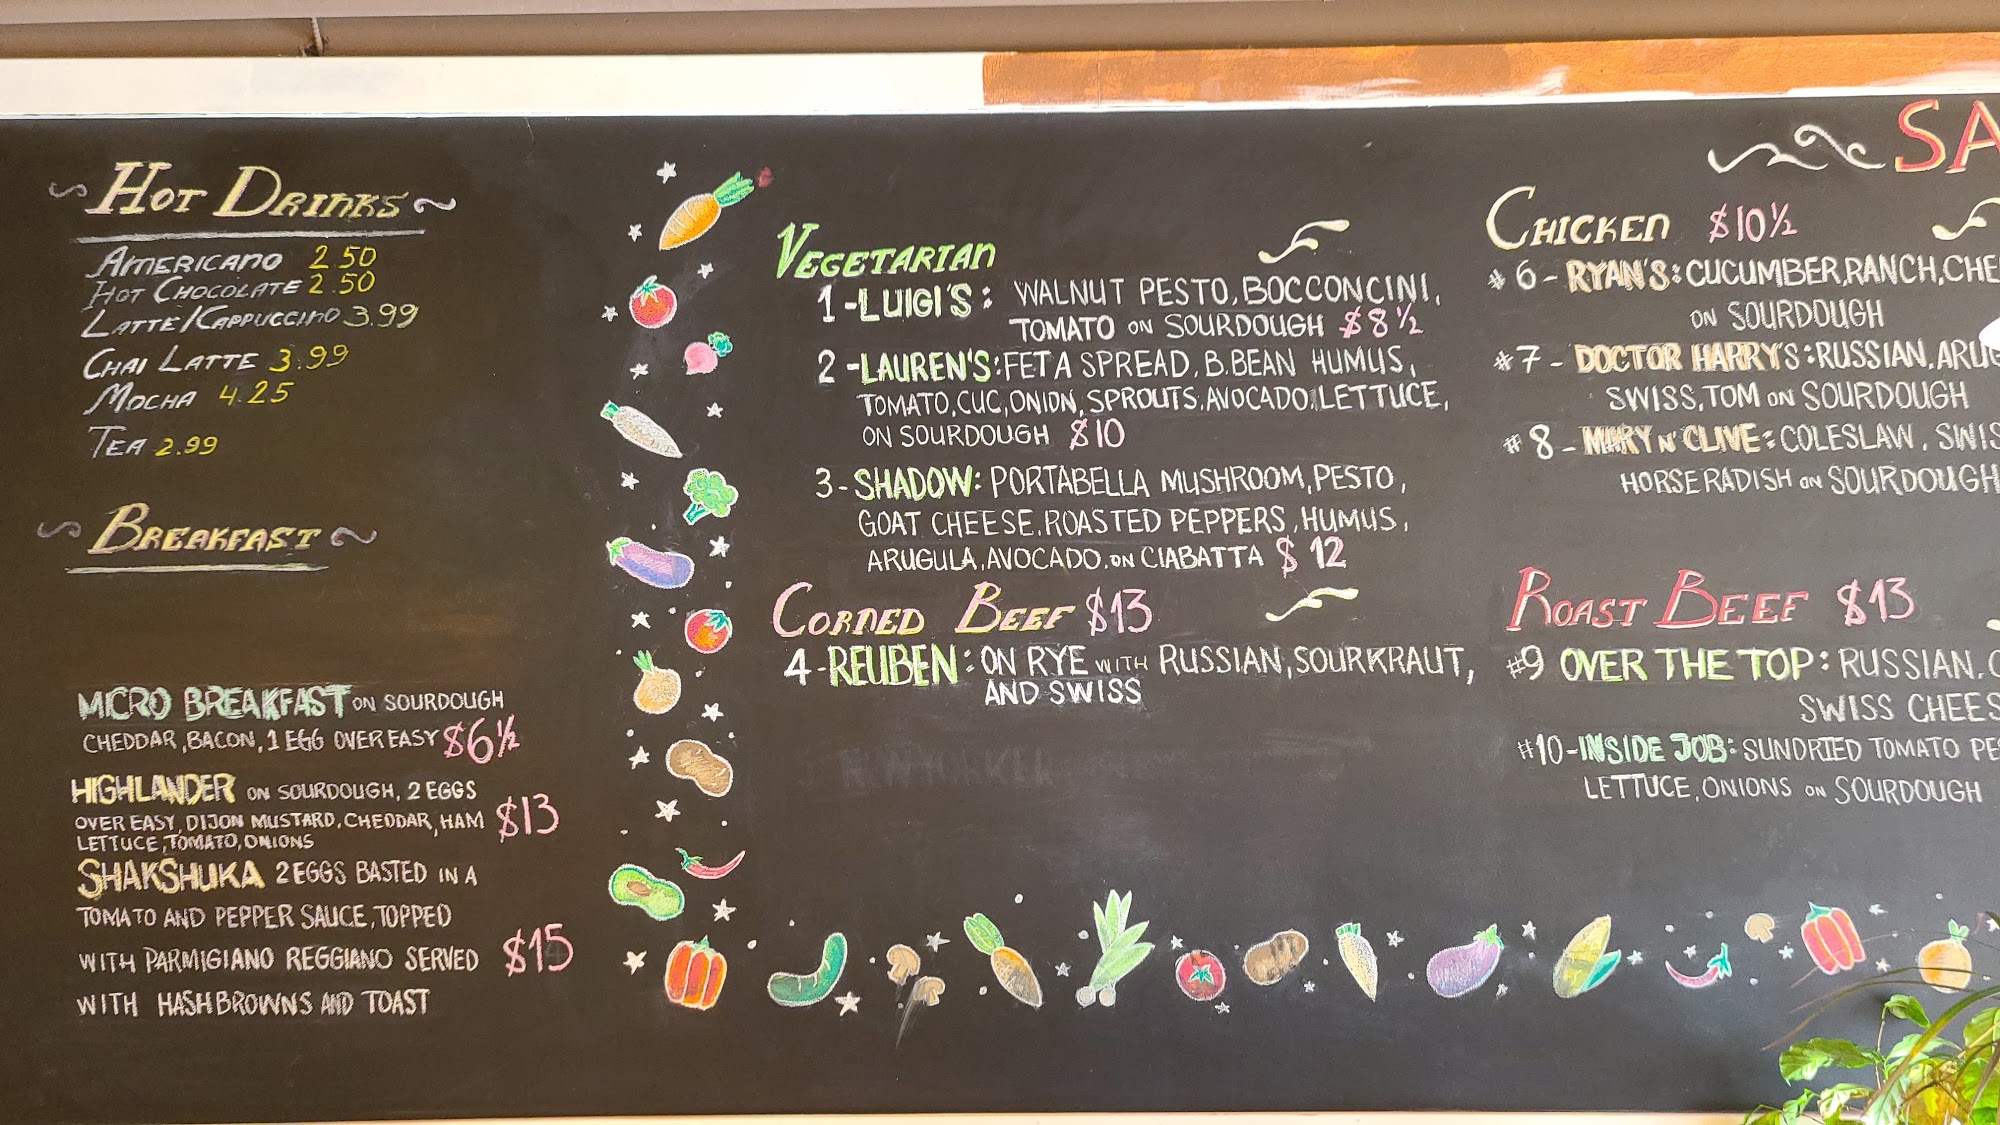 Hot Drinks
Americano 2.50
Hot Chocolate 2.50
Latte/Cappuccino 3.99
Chai Latte 3.99
Mocha 4.25
Tea 2.99
Breakfast
MICRO BREAKFAST ON SOURDOUGH
CHEDDAR, BACON, 1 EGG OVER EASY $6½
HIGHLANDER ON SOURDOUGH, 2 EGGS
OVER EASY, DIJON MUSTARD, CHEDDAR, HAM $13
LETTUCE, TOMATO, ONIONS
SHAKSHUKA 2 EGGS BASTED IN A
TOMATO AND PEPPER SAUCE, TOPPED
WITH PARMIGIANO REGGIANO SERVED $15
WITH HASHBROWNS AND TOAST
Vegetarian
1-LUIGI'S: WALNUT PESTO, BOCCONCINI,
TOMATO ON SOURDOUGH $8½
2-LAUREN'S: FETA SPREAD, B.BEAN HUMUS,
TOMATO, CUC, ONION, SPROUTS, AVOCADO, LETTUCE,
ON SOURDOUGH $10
3-SHADOW: PORTABELLA MUSHROOM, PESTO,
GOAT CHEESE, ROASTED PEPPERS, HUMUS,
ARUGULA, AVOCADO, ON CIABATTA $12
Corned Beef $13
4-REUBEN: ON RYE WITH RUSSIAN, SOURKRAUT,
AND SWISS
SA
Chicken $10½
#6-RYAN'S: CUCUMBER, RANCH, CHE
ON SOURDOUGH
#7-DOCTOR HARRY'S: RUSSIAN, ARUG
SWISS, TOM ON SOURDOUGH
#8-MARY N' CLIVE: COLESLAW, SWIS
HORSERADISH ON SOURDOUGH
Roast Beef $13
#9 OVER THE TOP: RUSSIAN,
SWISS CHEES
#10-INSIDE JOB: SUNDRIED TOMATO PE
LETTUCE, ONIONS ON SOURDOUGH